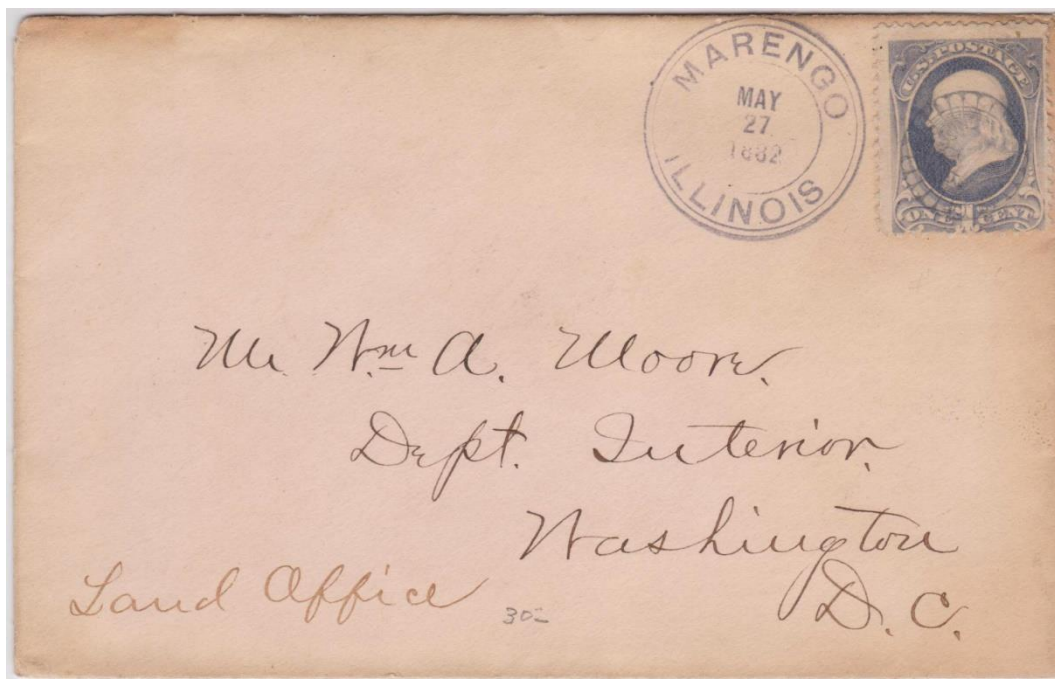 MARENGO
MAY
27
1882
ILLINOIS
U.S. POSTAGE
ONE 1 CENT
Mr. Wm A. Moore.
Dept. Interior.
Washington
D. C.
Land Office
30-